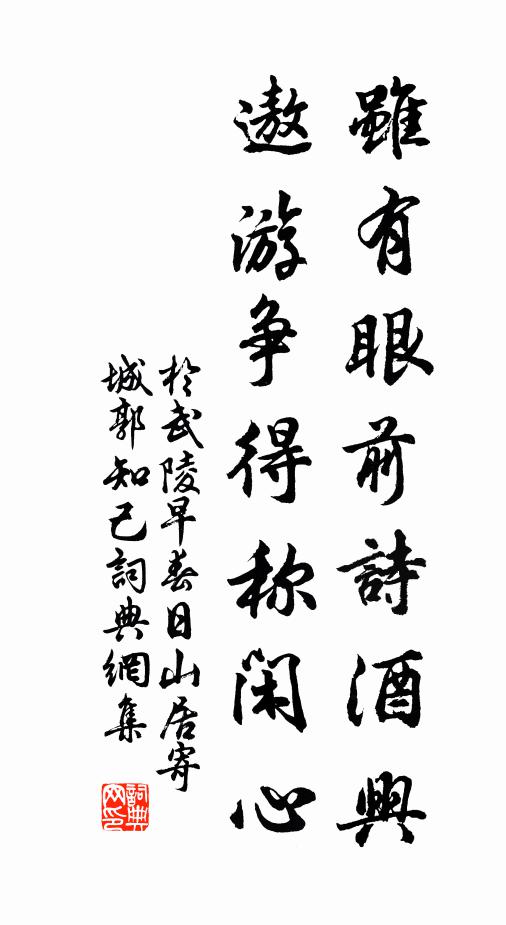 雖有眼前詩酒興
遨游争得称閑心
於武陵早春日山居寄
城郭知己詞典網集
詞典
网印